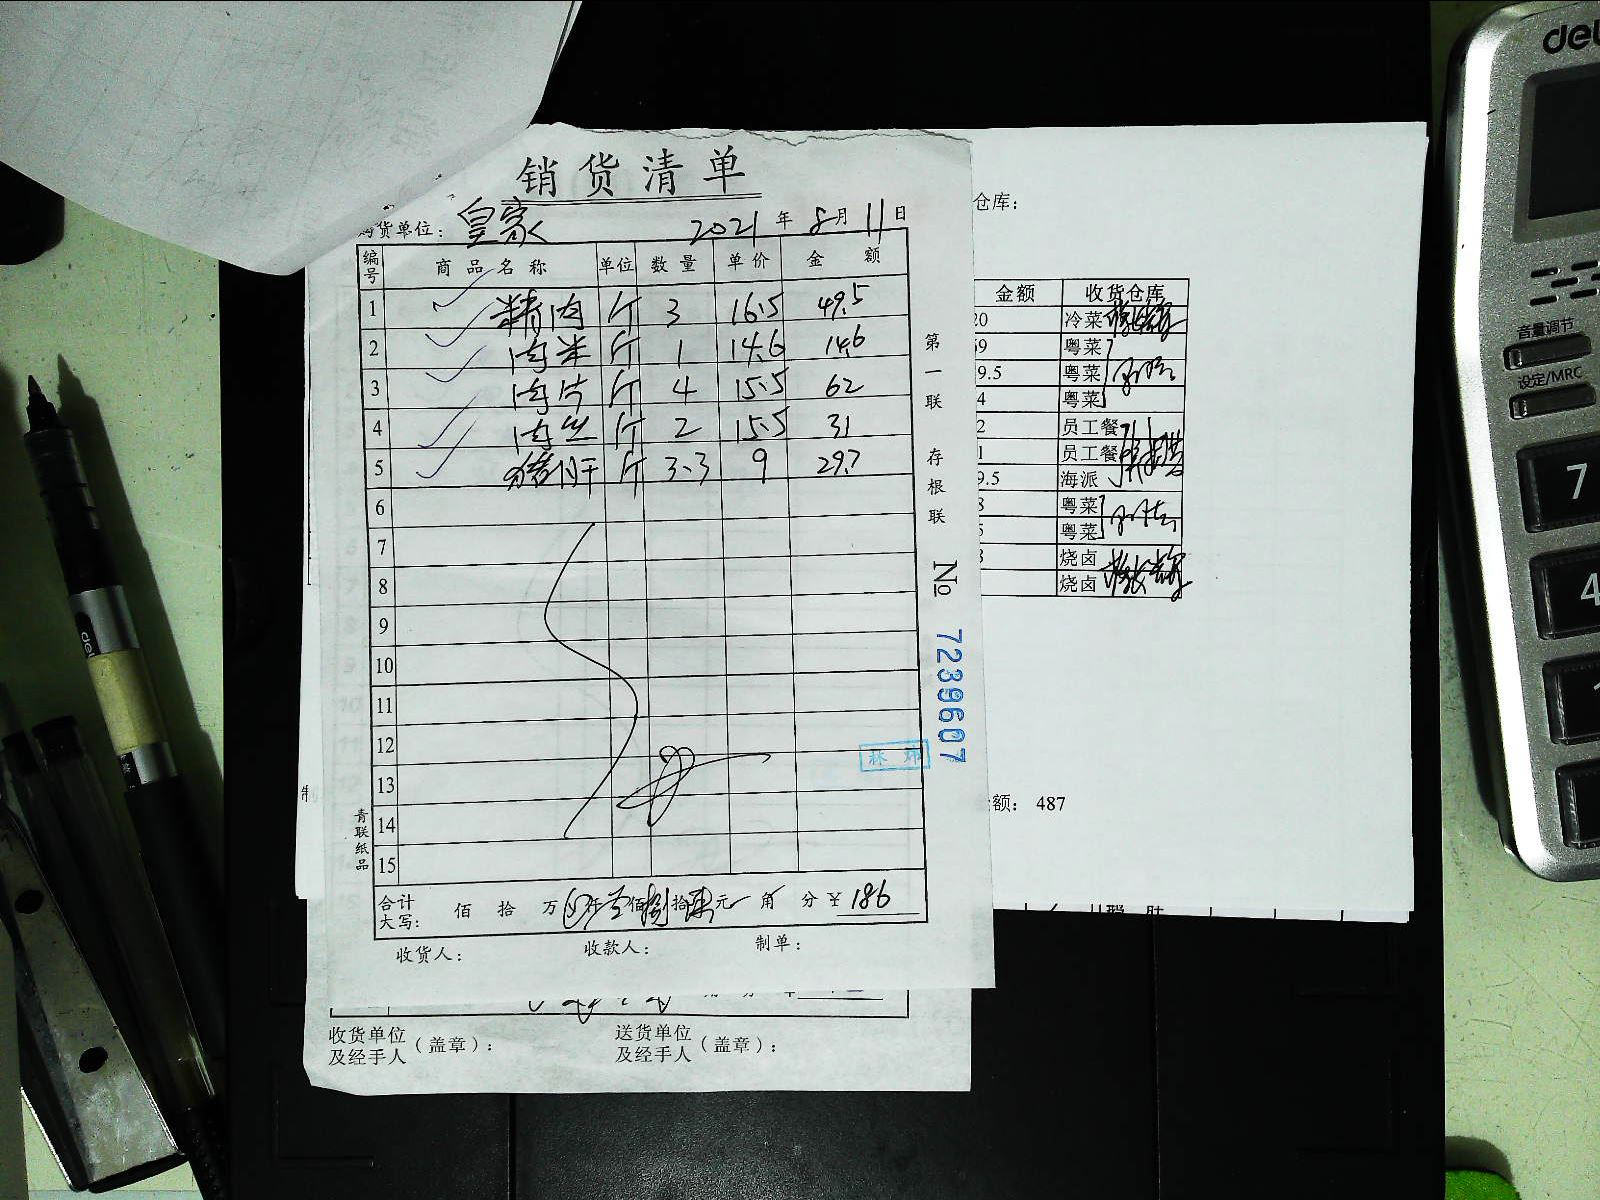 销货清单
购货单位：皇家 2021年8月11日
编号 商品名称 单位 数量 单价 金额
1 精肉 斤 3 16.5 49.5
2 肉米 斤 1 14.6 14.6
3 肉片 斤 4 15.5 62
4 肉丝 斤 2 15.5 31
5 猪肝 斤 3.3 9 29.7
6
7
8
9
10
11
12
13
14
15
合计大写： 佰 拾 万 仟 壹 佰 捌 拾 元 角 分 ￥186
收货人： 收款人： 制单：
第一联 存根联
No 7239607
青联纸品
林
收货单位及经手人（盖章）：
送货单位及经手人（盖章）：
仓库：
金额 收货仓库
20 冷菜
59 粤菜
9.5 粤菜
4 粤菜
2 员工餐
1 员工餐
9.5 海派
8 粤菜
粤菜
烧卤
烧卤
金额： 487
deli
音量调节
设定/MRC
7
4
1
deli